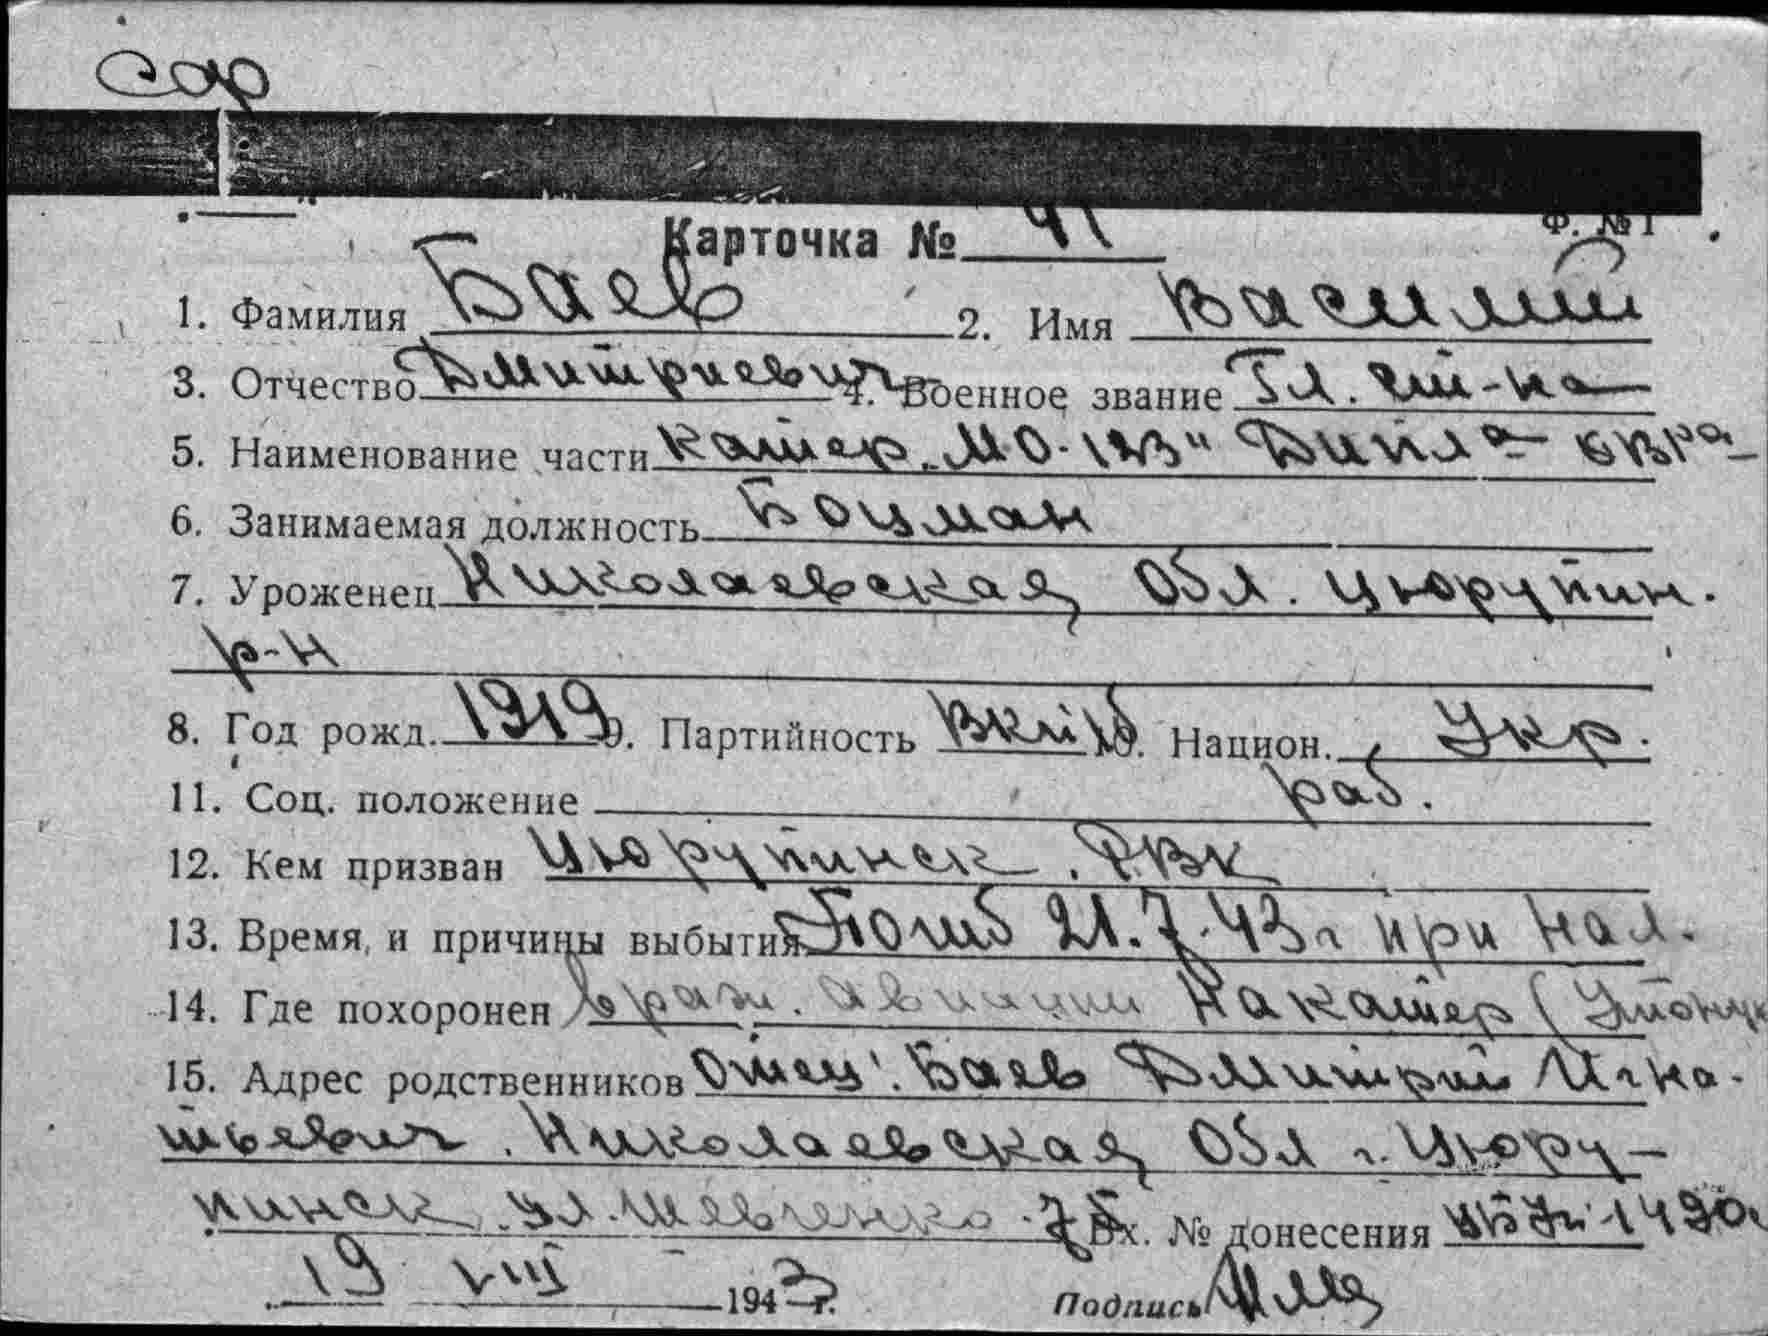 Сар
Карточка № 41 Ф. № 1
1. Фамилия Баев 2. Имя Василий
3. Отчество Дмитриевич 4. Военное звание Гл. ст-на
5. Наименование части Катер „МО-
6. Занимаемая должность Боцман
7. Уроженец Николаевская обл. Цюрупин.
р-н
8. Год рожд. 1919 9. Партийность ВКП/б 10. Национ. Укр.
11. Соц. положение раб.
12. Кем призван Цюрупинск. РВК
13. Время и причины выбытия Погиб 21.7.43 г при нал.
14. Где похоронен враж. авиации на катер
15. Адрес родственников Отец: Баев Дмитрий Игна-
тьевич. Николаевская обл г. Цюру-
пинск, ул. Шевченко Вх. № донесения
19 VIII 1943 г. Подпись